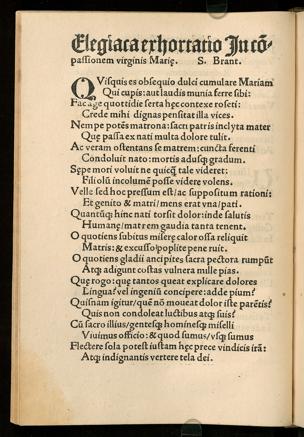 Elegiaca exhortatio In cō-
passionem virginis Marię. S. Brant.
QVisquis es obsequio dulci cumulare Mariam
Qui cupis: aut laudis munia ferre sibi:
Fac age quottidie serta hęc contexe roseti:
Crede mihi dignas pensitat illa vices.
Nempe potēs matrona: sacri patris inclyta mater
Que passa ex nati multa dolore tulit.
Ac veram ostentans se matrem: cuncta ferenti
Condoluit nato: mortis adusq gradum.
Sępe mori voluit ne quicq̄ tale videret:
Fili olū incolumē posse videre volens.
Velle sed hoc pressum est/ac suppositum rationi:
Et genito & matri/mens erat vna/pati.
Quantūq; hinc nati torsit dolor: inde salutis
Humanę/matrem gaudia tanta tenent.
O quotiens subitus miserę calor ossa reliquit
Matris: & excusso poplite pene ruit.
O quotiens gladii ancipites sacra pectora rumpūt
Atq; adigunt costas vulnera mille pias.
Que rogo: que tantos queat explicare dolores
Lingua? vel ingeniū concipere: adde pium?
Quisnam igitur/quē nō moueat dolor iste parētis?
Quis non condoleat luctibus atq; suis?
Cū sacro illius/gentesq; hominesq; miselli
Viuimus officio: & quod sumus/vsq; sumus
Flectere sola potest iustam hęc prece vindicis irā:
Atq; indignantis vertere tela dei.